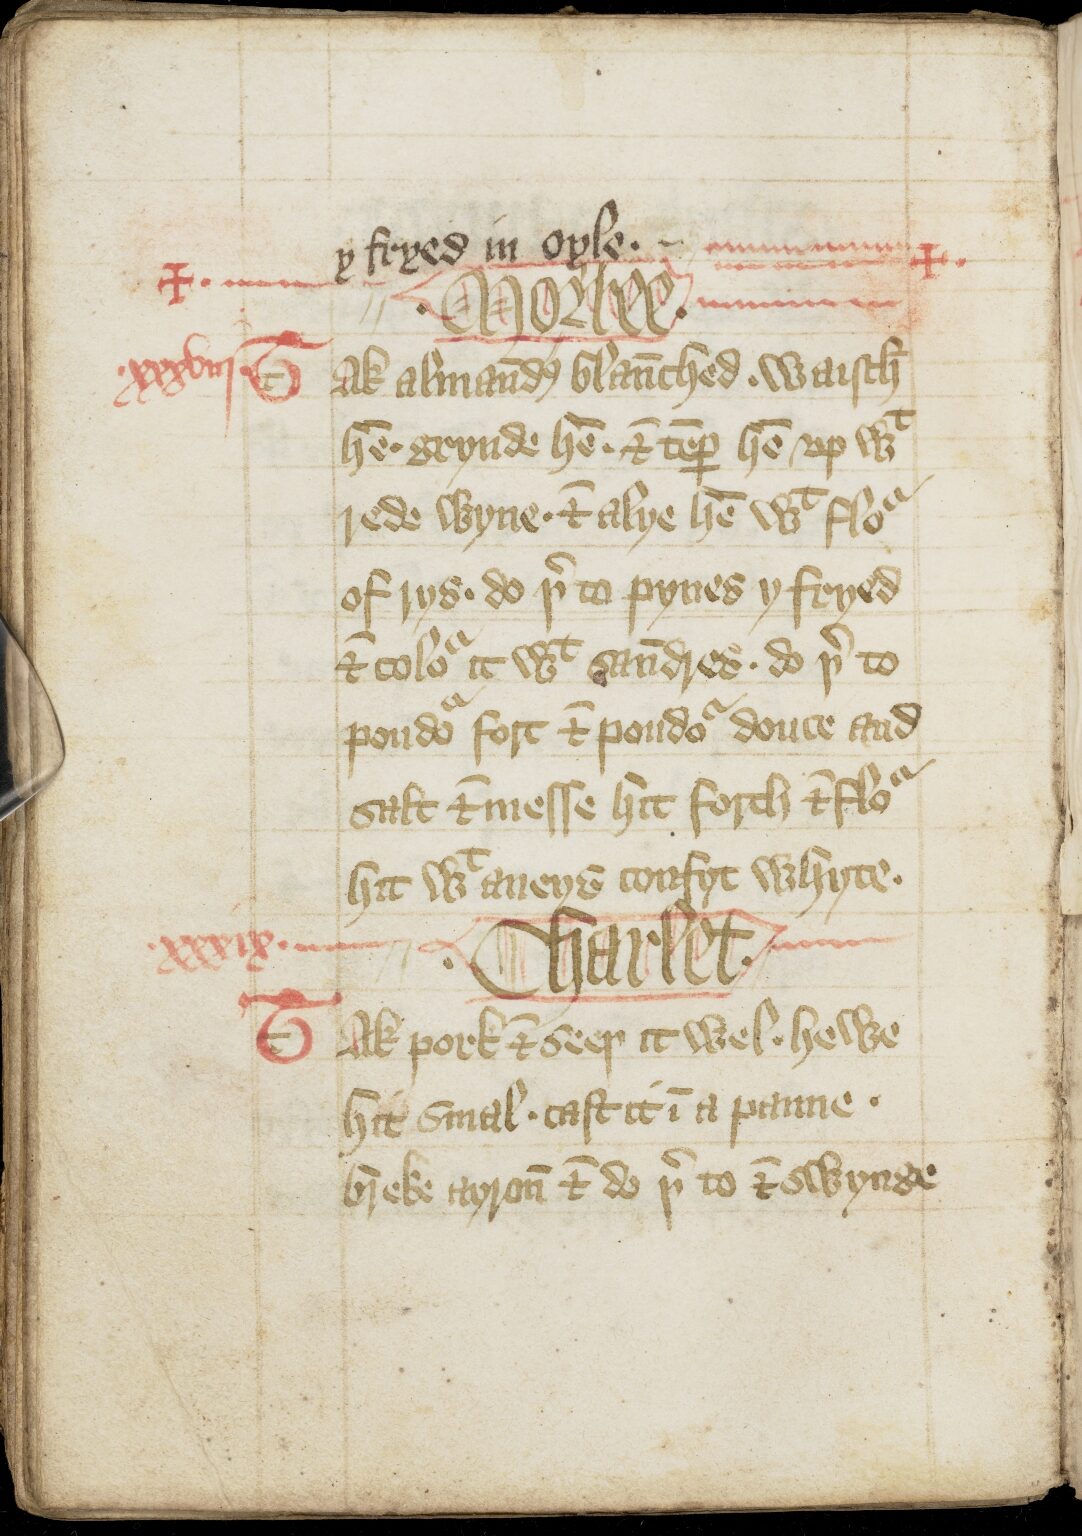 y fryed in oyle.
.Morree.
.xxxviij. Tak almaund͛ blāched . waisch
hē . grynde hē . ⁊ tēp̲ hē up wᵗ
rede wyne . ⁊ alye hē wᵗ floᵃ
of rys . do þ̉ to pynes y fryed
⁊ coloᵃ it wᵗ saūdres . do þ̉ to
poudoᵃ fort ⁊ poudoᵃ douce and
salt ⁊ messe hit forth ⁊ floᵃ
hit wᵗ aneys confyt whyte.
.xxxix. .Charlet.
Tak pork ⁊ seeþ it wel . hewe
hit smal . cast it ī a panne .
breke ayron̄ ⁊ do þ̉ to ⁊ swynge